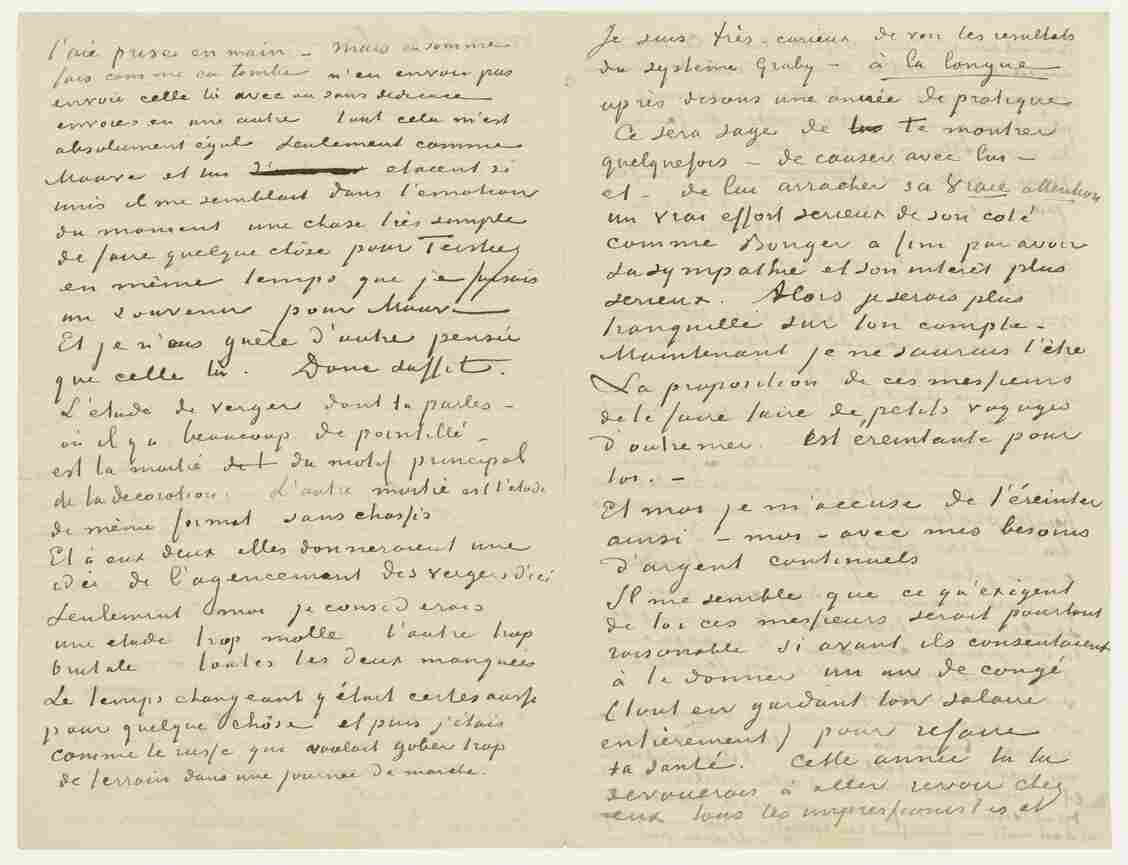 l'aie prise en main – mais en somme
fais comme ça tombe n'en envoie pas
envoie celle là avec ou sans dédicace
envoies en une autre tout cela m'est
absolument égal seulement comme
Mauve et lui etaient si
unis il me semblait dans l'emotion
du moment une chose très simple
de faire quelque chôse pour Tersteeg
en même temps que je faisais
un souvenir pour Mauve
Et je n'eus guère d'autre pensée
que celle là. Donc suffit.
L'etude de verger dont tu parles –
où il y a beaucoup de pointillé –
est la moitié du motif principal
de la decoration. L'autre moitié est l'etude
de même format sans chassis
Et à eux deux elles donneraient une
idée de l'agencement des vergers d'ici
Seulement moi je considerais
une etude trop molle l'autre trop
brutale toutes les deux manquées
Le temps changeant y était certes aussi
pour quelque chôse et puis j'étais
comme le russe qui voulait gober trop
de terrain dans une journée de marche.
Je suis très-curieux de voir les resultats
du système Gruby – à la longue
après disons une année de pratique
Ce sera sage de te montrer
quelquefois – de causer avec lui –
et – de lui arracher sa vraie attention
un vrai effort serieux de son coté
comme Bonger a fini par avoir
sa sympathie et son intérêt plus
serieux. Alors je serais plus
tranquille sur ton compte –
Maintenant je ne saurais l'être
La proposition de ces messieurs
de te faire faire de petits voyages
d'outremer est ereintante pour
toi. –
Et moi je m'accuse de t'éreinter
ainsi – moi – avec mes besoins
d'argent continuels
Il me semble que ce qu'exigent
de toi ces messieurs serait pourtant
raisonable si avant ils consentaient
à te donner un an de congé
(tout en gardant ton salaire
entièrement) pour refaire
ta santé. Cette année là tu
devouerais à aller revoir chez
eux tous les impressionistes et